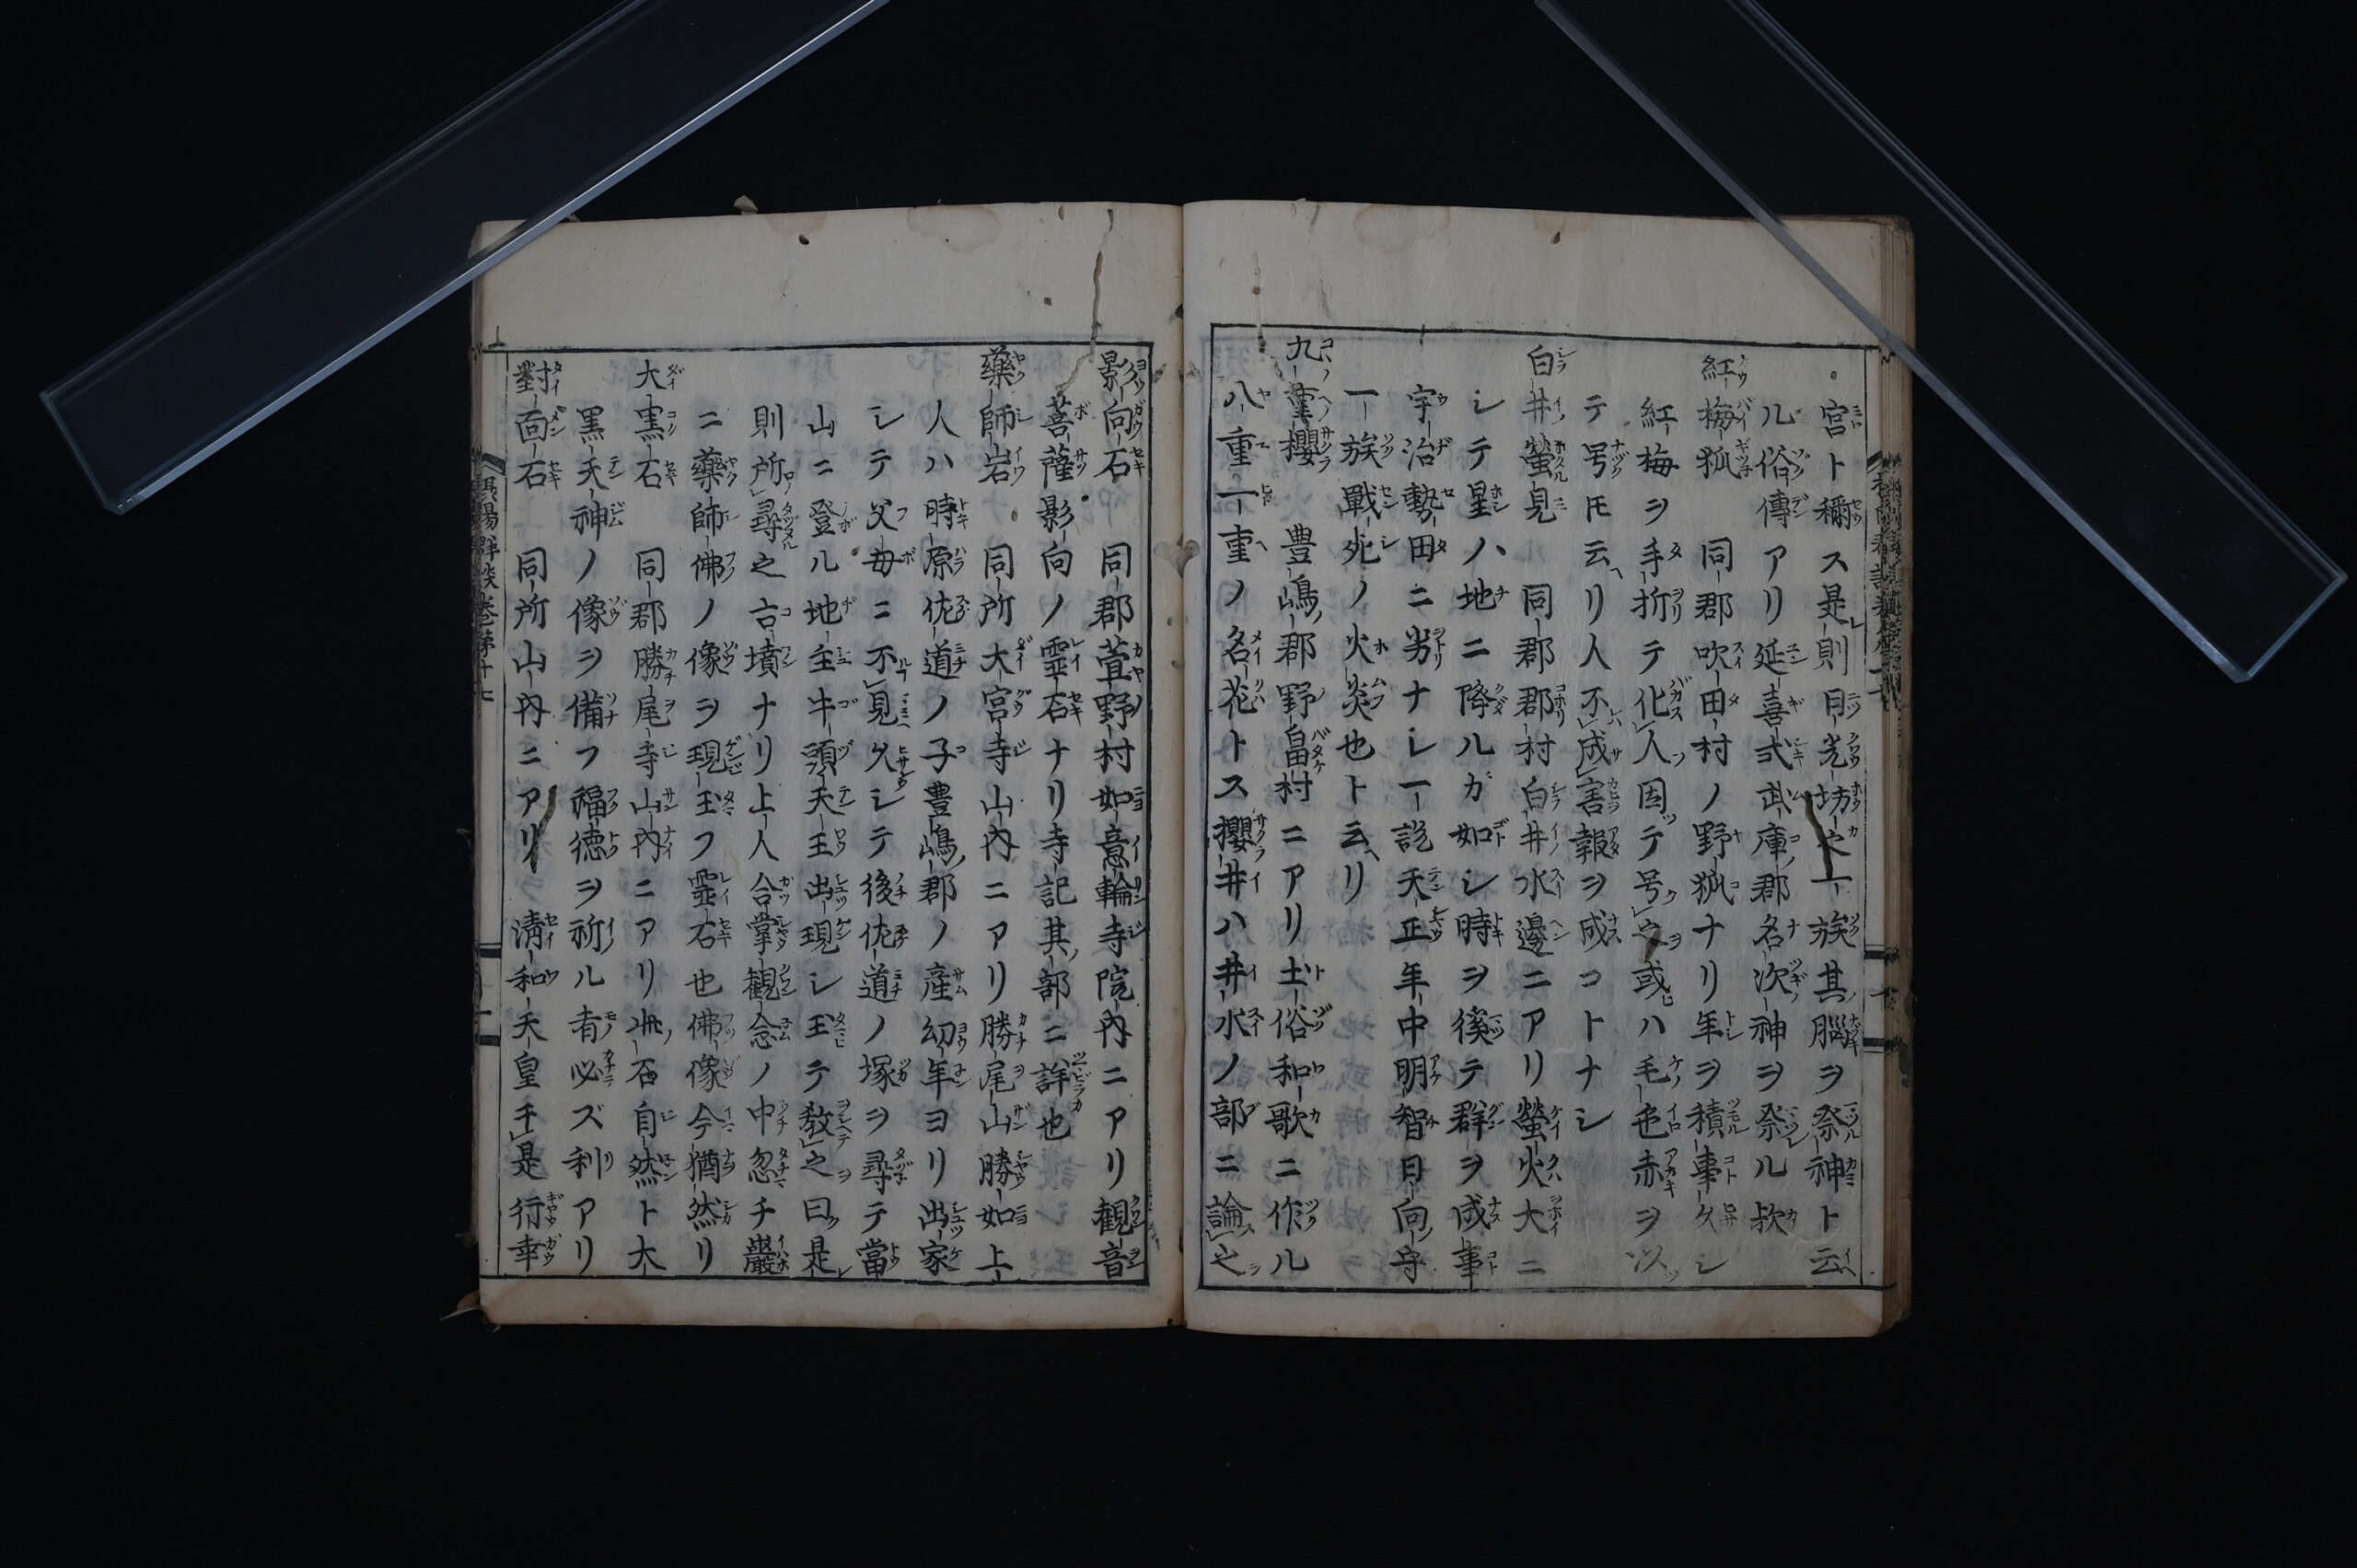 宮ト称ス是則日光坊之一族其脳ヲ祭神ト云
ル俗傳アリ延喜式武庫郡名次神ヲ祭ル歟
紅梅狐 同郡吹田村ノ野狐ナリ年ヲ積事久シ
紅梅ヲ手折テ化人因テ号之或ハ毛色赤ヲ以
テ号トモ云リ人不成害報ヲ成コトナシ
白井螢見 同郡郡村白井水邊ニアリ螢火大ニ
シテ星ノ地ニ降ルガ如シ時ヲ徯テ群ヲ成事
宇治勢田ニ劣ナシ一説天正年中明智日向守
一族戰死ノ火炎也ト云リ
九重櫻 豊嶋郡野畠村ニアリ土俗和歌ニ作ル
八重一重ノ名花トス櫻井ハ井水ノ部ニ論之
影向石 同郡萱野村如意輪寺院内ニアリ観音
菩薩影向ノ靈石ナリ寺記其部ニ詳也
藥師岩 同所大宮寺山内ニアリ勝尾山勝如上
人ハ時原佐道ノ子豊嶋郡ノ産幼年ヨリ出家
シテ父母ニ不見久シテ後佐道ノ塚ヲ尋テ當
山ニ登ル地主牛頭天王出現シ玉テ教之曰是
則所尋之古墳ナリ上人合掌観念ノ中忽チ巖
ニ藥師佛ノ像ヲ現玉フ靈石也佛像今猶然リ
大黒石 同郡勝尾寺山内ニアリ此石自然ト大
黒天神ノ像ヲ備フ福徳ヲ祈ル者必ズ利アリ
對面石 同所山内ニアリ 淸和天皇于是行幸
摂陽群談巻第十七